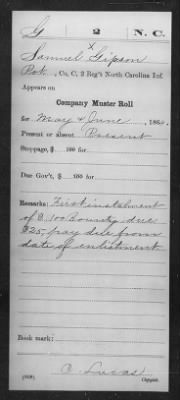 G 2 N. C.
x
Samuel Gipson
Pvt., Co. C, 2 Reg't North Carolina Inf.
Appears on
Company Muster Roll
for May & June, 1864.
Present or absent Present
Stoppage, $ 100 for
Due Gov't, $ 100 for
Remarks: First instalment
of $100 Bounty due
$25, pay due from
date of enlistment
Book mark:
C. Lucas
(858) Copyist.